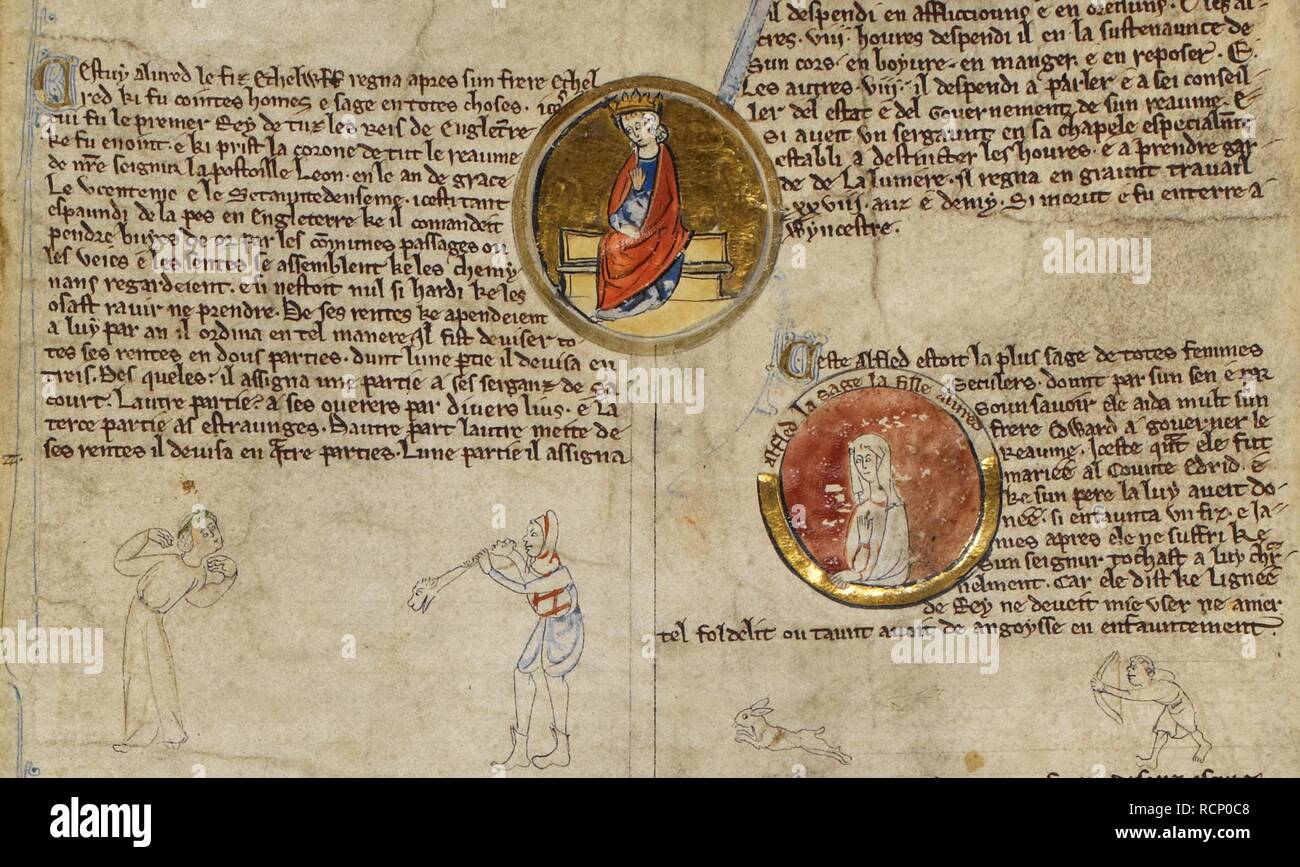 Cestuy Alured le fiz Ethelwlf regna apres sun frere Ethel
red ki fu cointes homes e sage en totes choses. icest
rui fu le premer Rey de tuz les Reis de Engleterre
ke fu enoint. e ki prist la corone de tut le reaume
de nr̄e seignur lapostoille Leon. en le an de grace
Le vicentenie e le setauntedeuseme. icesti tant
espaundi de la pes en Engleterre ke il comandeit
pendre buyes de or. par les cōmunes passages ou
les veies e les sentes se assemblent ke les chemy-
nans regardeient. e ū nestoit nul si hardi ke les
osast ravir ne prendre. De ses rentes ke apendeient
a luy par an il ordina en tel manere. Il fist deviser to-
tes ses rentes en dous parties. dunt lune ptie il devisa en
treis. Des queles: il assigna une partie a ses serganz de sa
court. Lautre partie: a ses overers par divers lius. e la
terce partie as estraunges. Dautre part lautre meite de
ses rentes il devisa en qtre parties. Lune partie il assigna
il despendi en affliccouns e en oreisuns. E les au-
tres. viii. houres despendi il en la sustenaunce de
sun cors. en boyvre. en manger. e en reposer. E.
Les autres. viii. il despendi a parler e a sei conseil-
ler del estat e del governement de sun reaume. E
si aveit un sergaunt en sa chapele especialmt
establi a destincter les houres. e a prendre gar-
de de la lumere. Il regna en graunt travail
xxviii. anz e demy. Si morut e fu enterre a
Wyncestre.
Ceste Alfled estoit la plus sage de totes femmes
seculers. dount par sun sen e par
soun savoir ele aida mult sun
frere Edward a governer le
Reaume. Iceste qant ele fut
mariee al Counte Edrid. e
ke sun pere la luy aveit do-
nee. si enfaunta un fiz. e ja-
mes apres ele ne suffri ke
sun seignur tochast a luy char-
nelment. Car ele dist ke lignee
de Rey ne deveit mie user ne amer
tel fol delit ou taunt avoit de angoysse en enfauntement.
Alfled la sage la fille Alured
alamy
Image ID: RCP0C8
www.alamy.com